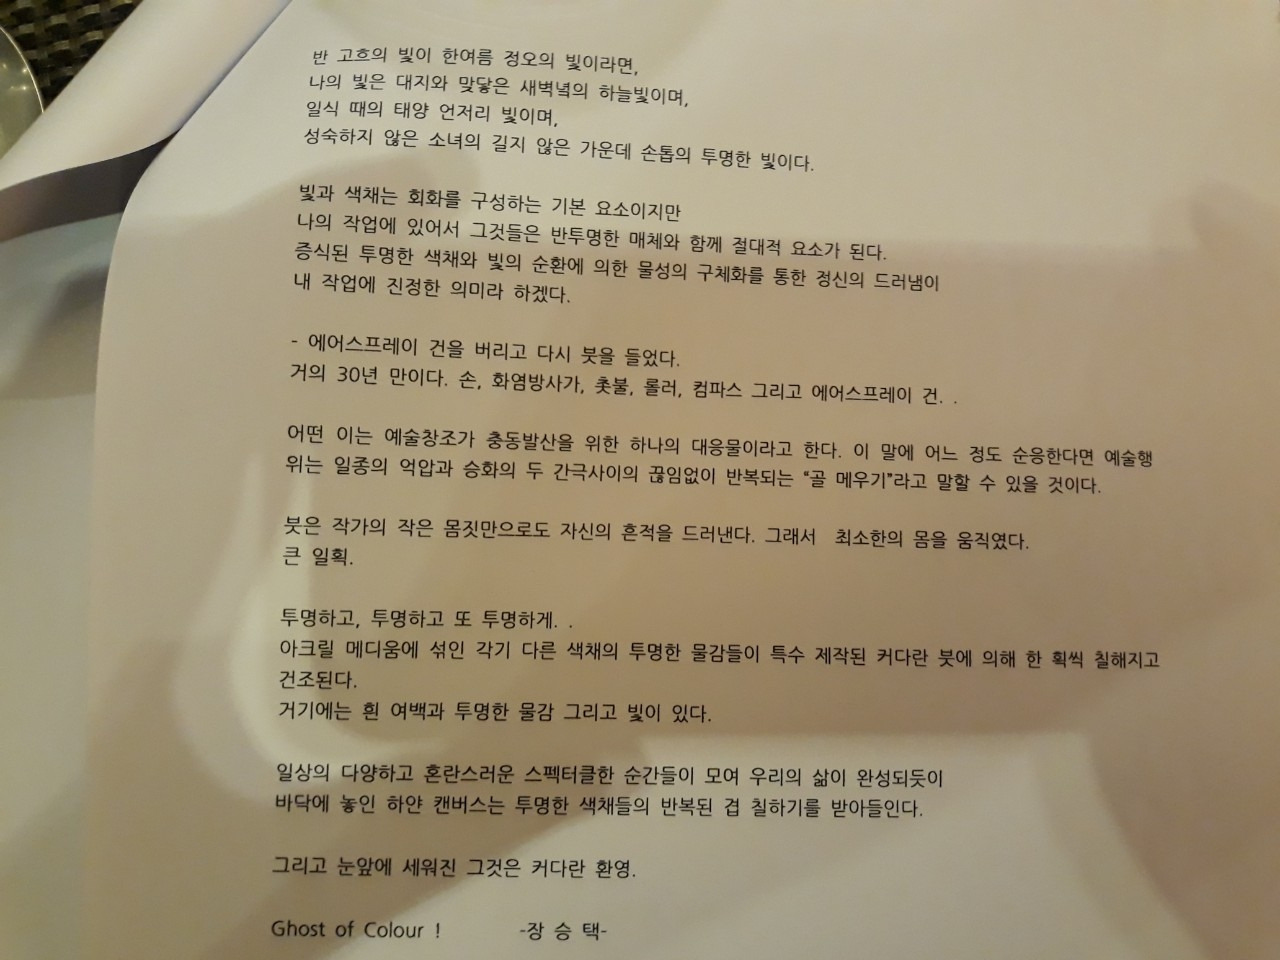 반 고흐의 빛이 한여름 정오의 빛이라면,
나의 빛은 대지와 맞닿은 새벽녘의 하늘빛이며,
일식 때의 태양 언저리 빛이며,
성숙하지 않은 소녀의 길지 않은 가운데 손톱의 투명한 빛이다.
빛과 색채는 회화를 구성하는 기본 요소이지만
나의 작업에 있어서 그것들은 반투명한 매체와 함께 절대적 요소가 된다.
증식된 투명한 색채와 빛의 순환에 의한 물성의 구체화를 통한 정신의 드러냄이
내 작업에 진정한 의미라 하겠다.
- 에어스프레이 건을 버리고 다시 붓을 들었다.
거의 30년 만이다. 손, 화염방사가, 촛불, 롤러, 컴파스 그리고 에어스프레이 건. .
어떤 이는 예술창조가 충동발산을 위한 하나의 대응물이라고 한다. 이 말에 어느 정도 순응한다면 예술행
위는 일종의 억압과 승화의 두 간극사이의 끊임없이 반복되는 “골 메우기”라고 말할 수 있을 것이다.
붓은 작가의 작은 몸짓만으로도 자신의 흔적을 드러낸다. 그래서 최소한의 몸을 움직였다.
큰 일획.
투명하고, 투명하고 또 투명하게. .
아크릴 메디움에 섞인 각기 다른 색채의 투명한 물감들이 특수 제작된 커다란 붓에 의해 한 획씩 칠해지고
건조된다.
거기에는 흰 여백과 투명한 물감 그리고 빛이 있다.
일상의 다양하고 혼란스러운 스펙터클한 순간들이 모여 우리의 삶이 완성되듯이
바닥에 놓인 하얀 캔버스는 투명한 색채들의 반복된 겹 칠하기를 받아들인다.
그리고 눈앞에 세워진 그것은 커다란 환영.
Ghost of Colour ! -장 승 택-